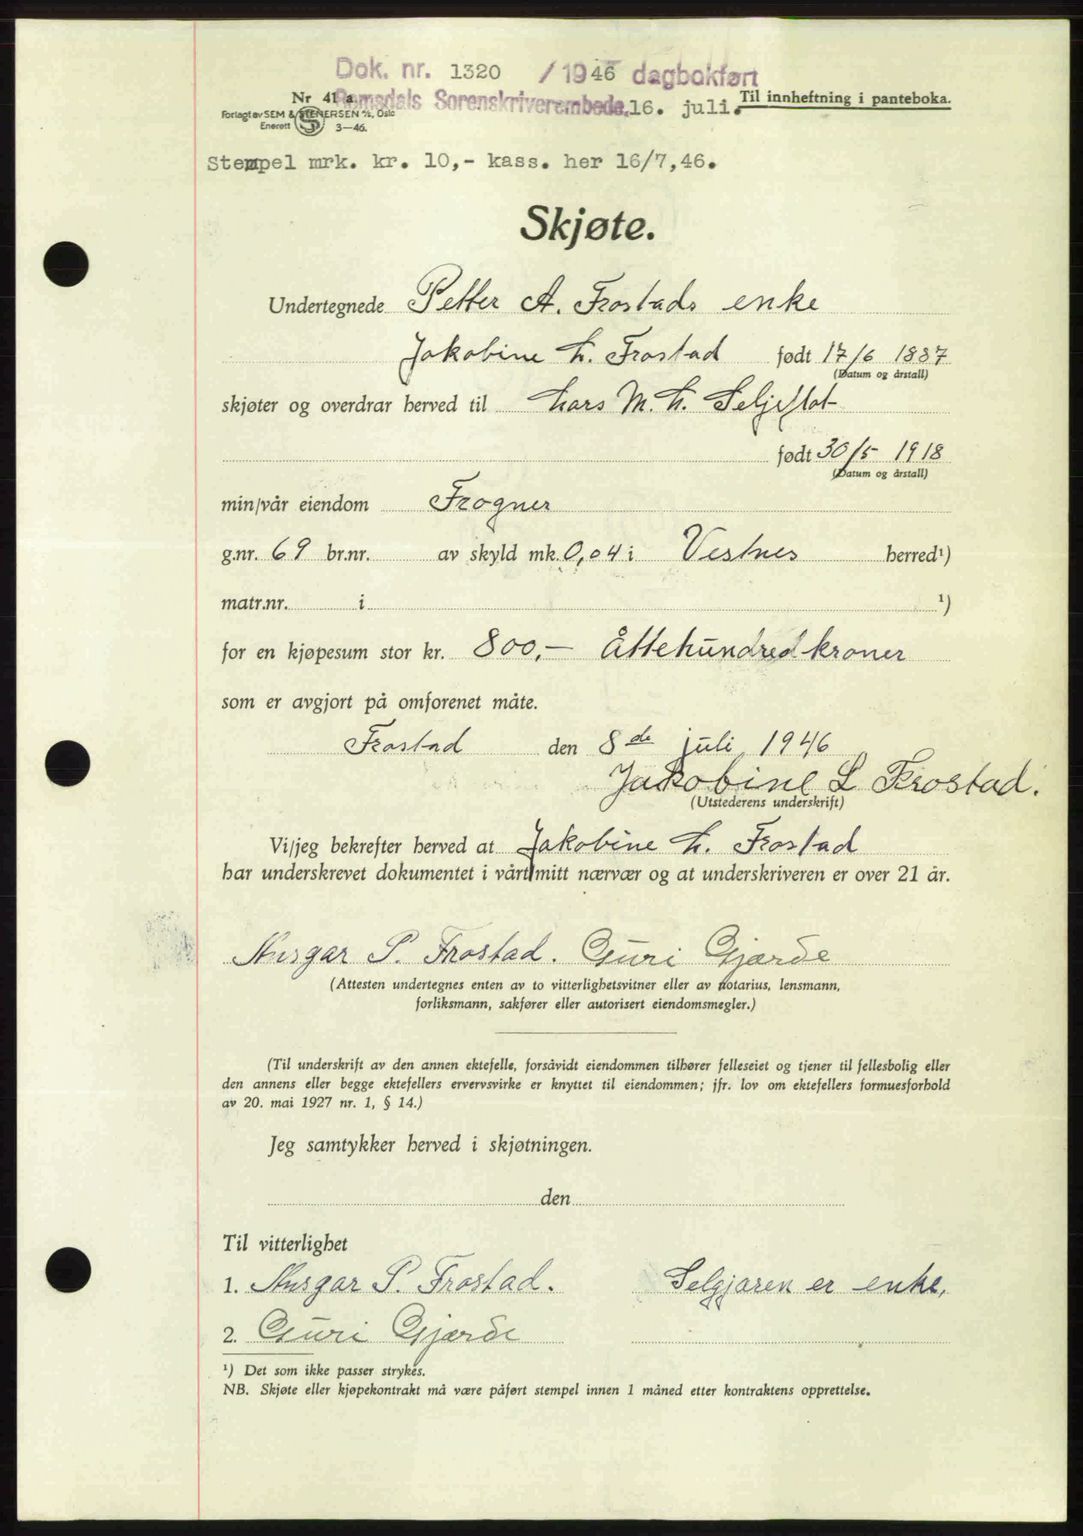 Dok. nr. 1320 /1946 dagbokført
Romsdals Sorenskriverembede. 16. juli.
Nr 41 a
Til innheftning i panteboka.
Forlagt av SEM & STENERSEN A/S, Oslo
Enerett 3—46.
Stempel mrk. kr. 10,- kass. her 16/7,46.
Skjøte.
Undertegnede Petter A. Frostads enke
Jakobine L. Frostad født 17/6 1887
(Datum og årstall)
skjøter og overdrar herved til Lars M. L. Seljeflot
født 30/5 1918
(Datum og årstall)
min/vår eiendom Frogner
g.nr. 69 br.nr. av skyld mk. 0,04 i Vestnes herred¹)
matr.nr. i ¹)
for en kjøpesum stor kr. 800,— Åttehundredkroner
som er avgjort på omforenet måte.
Frostad den 8de juli 1946
Jakobine L Frostad.
(Utstederens underskrift)
Vi/jeg bekrefter herved at Jakobine L. Frostad
har underskrevet dokumentet i vårt/mitt nærvær og at underskriveren er over 21 år.
Ansgar P. Frostad. Guri Gjærde
(Attesten undertegnes enten av to vitterlighetsvitner eller av notarius, lensmann,
forliksmann, sakfører eller autorisert eiendomsmegler.)
(Til underskrift av den annen ektefelle, forsåvidt eiendommen tilhører felleseiet og tjener til fellesbolig eller
den annens eller begge ektefellers ervervsvirke er knyttet til eiendommen; jfr. lov om ektefellers formuesforhold
av 20. mai 1927 nr. 1, § 14.)
Jeg samtykker herved i skjøtningen.
den
Til vitterlighet
1. Ansgar P. Frostad. Selgjaren er enke,
2. Guri Gjærde
¹) Det som ikke passer strykes.
NB. Skjøte eller kjøpekontrakt må være påført stempel innen 1 måned etter kontraktens opprettelse.